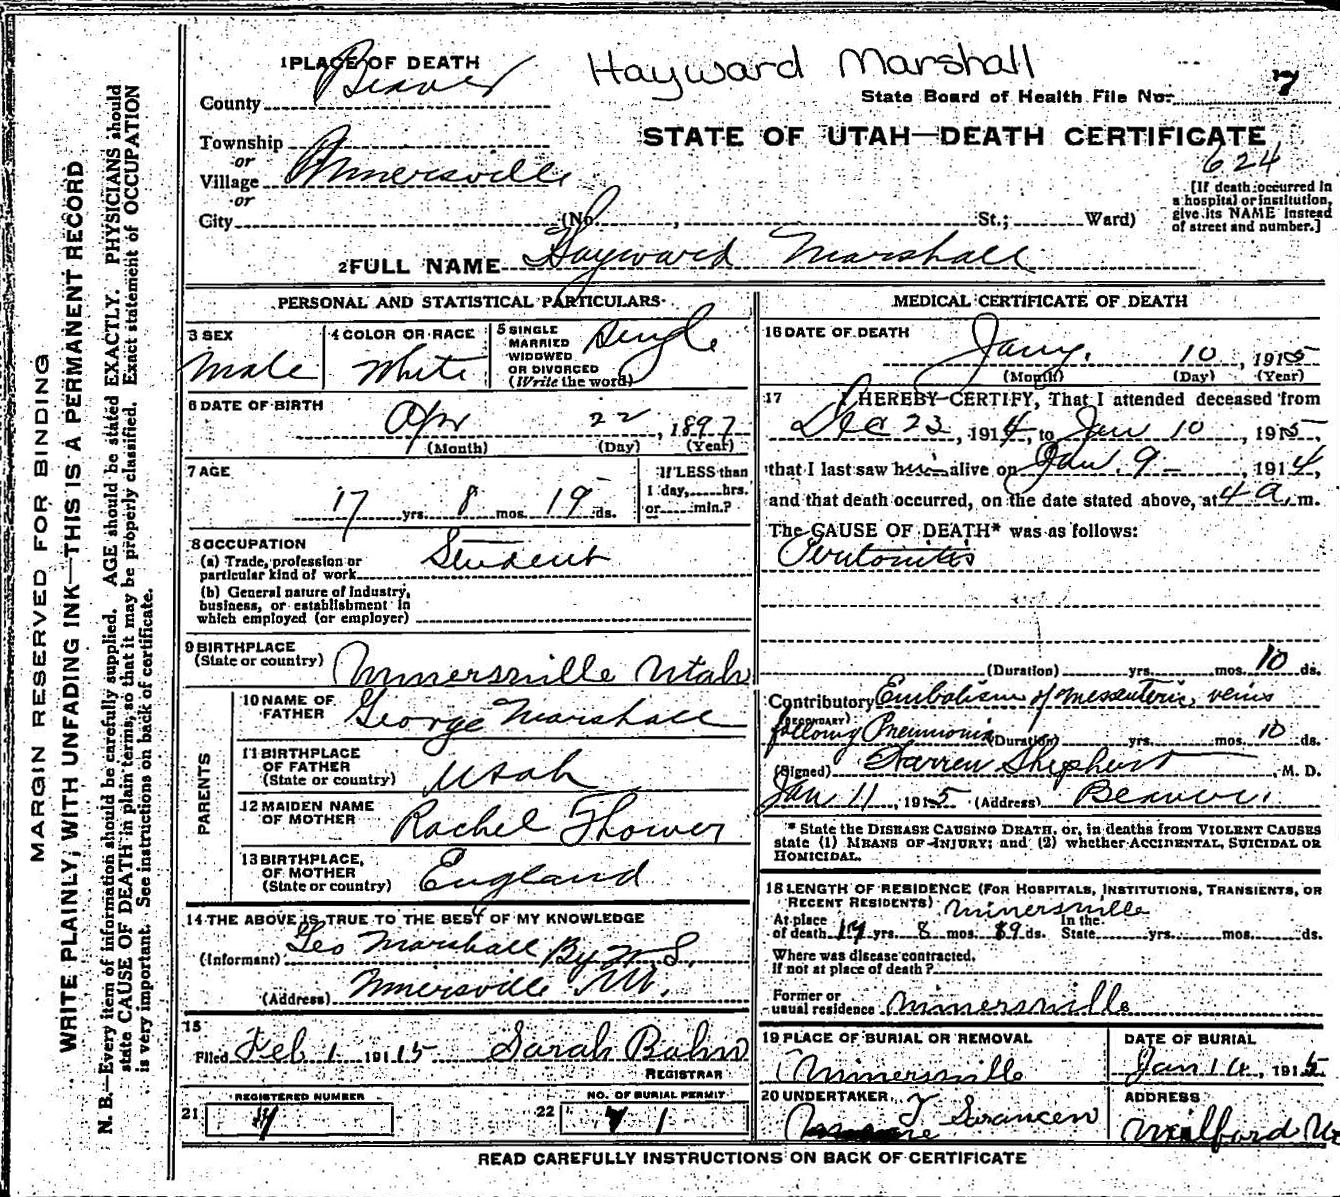 MARGIN RESERVED FOR BINDING
WRITE PLAINLY, WITH UNFADING INK—THIS IS A PERMANENT RECORD
N. B.—Every item of information should be carefully supplied. AGE should be stated EXACTLY. PHYSICIANS should
state CAUSE OF DEATH in plain terms, so that it may be properly classified. Exact statement of OCCUPATION
is very important. See instructions on back of certificate.
1 PLACE OF DEATH
Hayward Marshall
County Beaver
State Board of Health File No. 7
Township
STATE OF UTAH—DEATH CERTIFICATE
or
624
Village Minersville
or
City (No. , St.; Ward)
[If death occurred in
a hospital or institution,
give its NAME instead
of street and number.]
2 FULL NAME Hayward Marshall
PERSONAL AND STATISTICAL PARTICULARS
3 SEX
Male
4 COLOR OR RACE
White
5 SINGLE
MARRIED
WIDOWED
OR DIVORCED
(Write the word)
Single
6 DATE OF BIRTH
Apr 22, 1897
(Month) (Day) (Year)
7 AGE
17 yrs. 8 mos. 19 ds.
If LESS than
1 day, hrs.
or min.?
8 OCCUPATION
(a) Trade, profession or
particular kind of work Student
(b) General nature of industry,
business, or establishment in
which employed (or employer)
9 BIRTHPLACE
(State or country) Minersville Utah
PARENTS
10 NAME OF
FATHER George Marshall
11 BIRTHPLACE
OF FATHER
(State or country) Utah
12 MAIDEN NAME
OF MOTHER Rachel Thower
13 BIRTHPLACE,
OF MOTHER
(State or country) England
14 THE ABOVE IS TRUE TO THE BEST OF MY KNOWLEDGE
(Informant) Geo Marshall By W S.
(Address) Minersville
15
Filed Feb 1 1915 Sarah Bahn
REGISTRAR
REGISTERED NUMBER
21
NO. OF BURIAL PERMIT
22 1
MEDICAL CERTIFICATE OF DEATH
16 DATE OF DEATH
Jany. 10, 1915
(Month) (Day) (Year)
17 I HEREBY CERTIFY, That I attended deceased from
Dec 23, 1914, to Jan 10, 1915
that I last saw him alive on Jan. 9, 1914,
and that death occurred, on the date stated above, at 4 a. m.
The CAUSE OF DEATH* was as follows:
Peritonitis
(Duration) yrs. mos. 10 ds.
Contributory Embolism of messenteric veins
(SECONDARY)
following Pneumonia (Duration) yrs. mos. 10 ds.
(Signed) Warren Shepherd, M. D.
Jan 11, 1915 (Address) Beaver.
* State the DISEASE CAUSING DEATH, or, in deaths from VIOLENT CAUSES
state (1) MEANS OF INJURY; and (2) whether ACCIDENTAL, SUICIDAL OR
HOMICIDAL.
18 LENGTH OF RESIDENCE (FOR HOSPITALS, INSTITUTIONS, TRANSIENTS, OR
RECENT RESIDENTS) Minersville
At place
of death 17 yrs. 8 mos. 19 ds.
In the
State yrs. mos. ds.
Where was disease contracted,
If not at place of death?
Former or
usual residence Minersville
19 PLACE OF BURIAL OR REMOVAL
Minersville
DATE OF BURIAL
Jan 14, 1915
20 UNDERTAKER
T Swancen
ADDRESS
Milford
READ CAREFULLY INSTRUCTIONS ON BACK OF CERTIFICATE